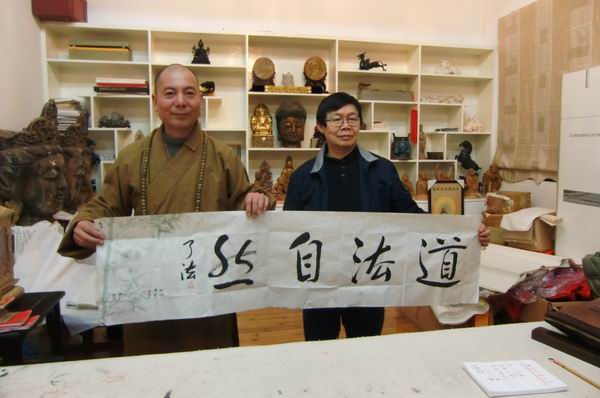 道法自然
了法